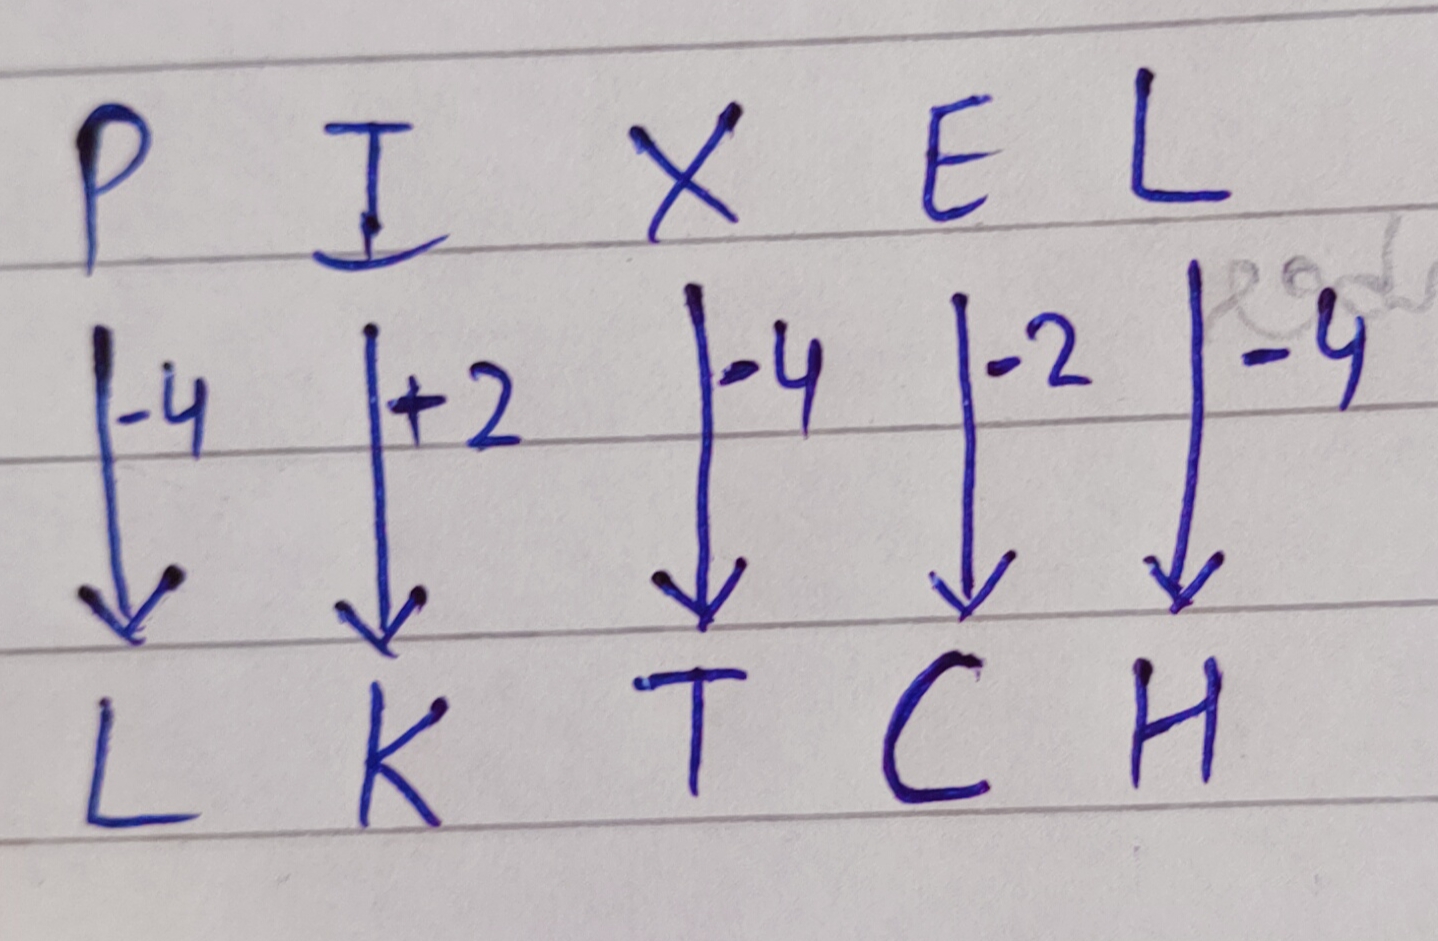 P I X E L
-4 +2 -4 -2 -4
L K T C H